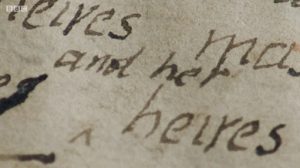 BBC
heires
and her
heires